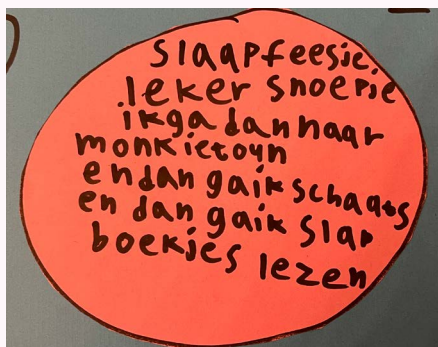 slaapfeesje
leker snoepje
ikga dan naar
monkietoyn
en dan ga ik schaats
en dan ga ik slap
boekjes lezen